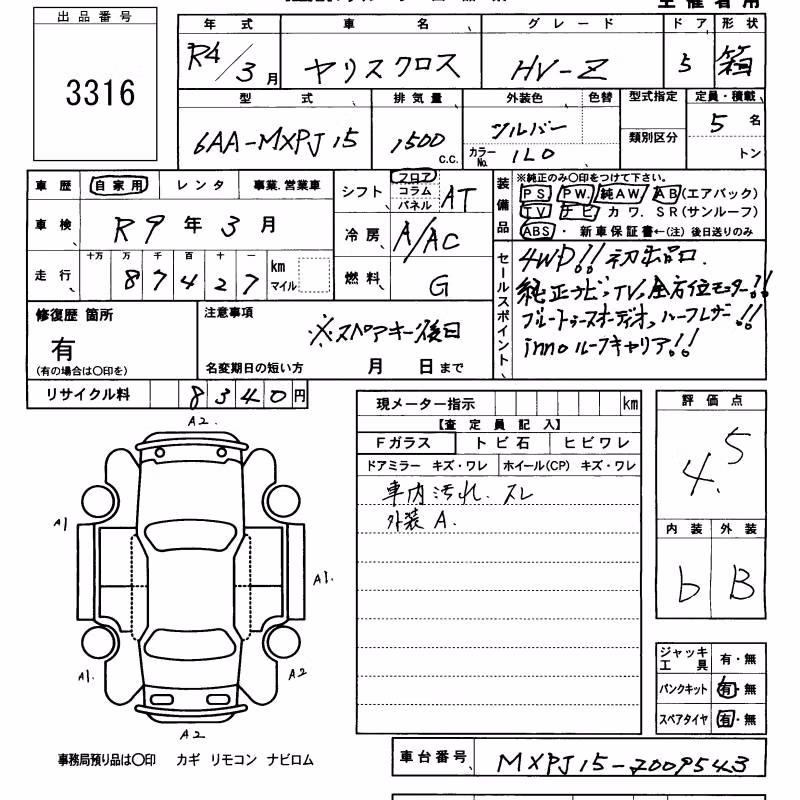 出品番号
3316
年式 車名 グレード ドア 形状
R4/3月 ヤリスクロス HV-Z 5 箱
型式 排気量 外装色 色替 型式指定 定員・積載
6AA-MXPJ15 1500 C.C. シルバー 5名
カラーNo. 1L0 類別区分 トン
車歴 自家用 レンタ 事業.営業車
車検 R9年3月
走行 十万 万 千 百 十 一 km マイル
87427
シフト フロア コラム パネル AT
冷房 A/AC
燃料 G
装備品
※純正のみ〇印をつけて下さい。
PS PW 純AW AB(エアバック)
TV ナビ カワ. SR(サンルーフ)
ABS ・ 新車保証書←(注) 後日送りのみ
セールスポイント
4WD!! 初出品.
純正ナビ、TV、全方位モニター!!
ブルートゥースオーディオ、ルーフレザー!!
innoルーフキャリア!!
修復歴 箇所
有
(有の場合は〇印を)
注意事項
※スペアキー後日
名変期日の短い方 月 日まで
リサイクル料 8340円
現メーター指示 km
【査定員記入】
Fガラス トビ石 ヒビワレ
ドアミラー キズ・ワレ ホイール(CP) キズ・ワレ
車内汚れ. スレ
外装 A.
評価点
4.5
内装 外装
b B
A2.
A1
A1.
A1.
A2
A2
ジャッキ工具 有・無
パンクキット 有・無
スペアタイヤ 有・無
事務局預り品は〇印 カギ リモコン ナビロム
車台番号 MXPJ15-7009543